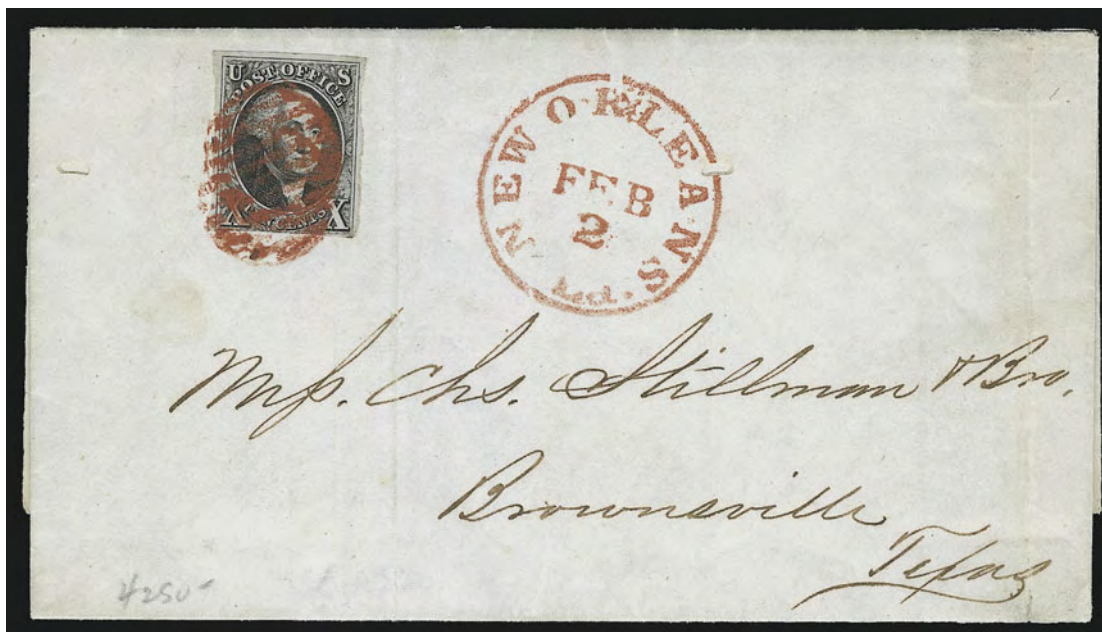 U S
POST OFFICE
X CENTS X
NEW ORLEANS
FEB
2
La.
Mess. Chs. Stillman & Bro,
Brownsville
Texas
4250-